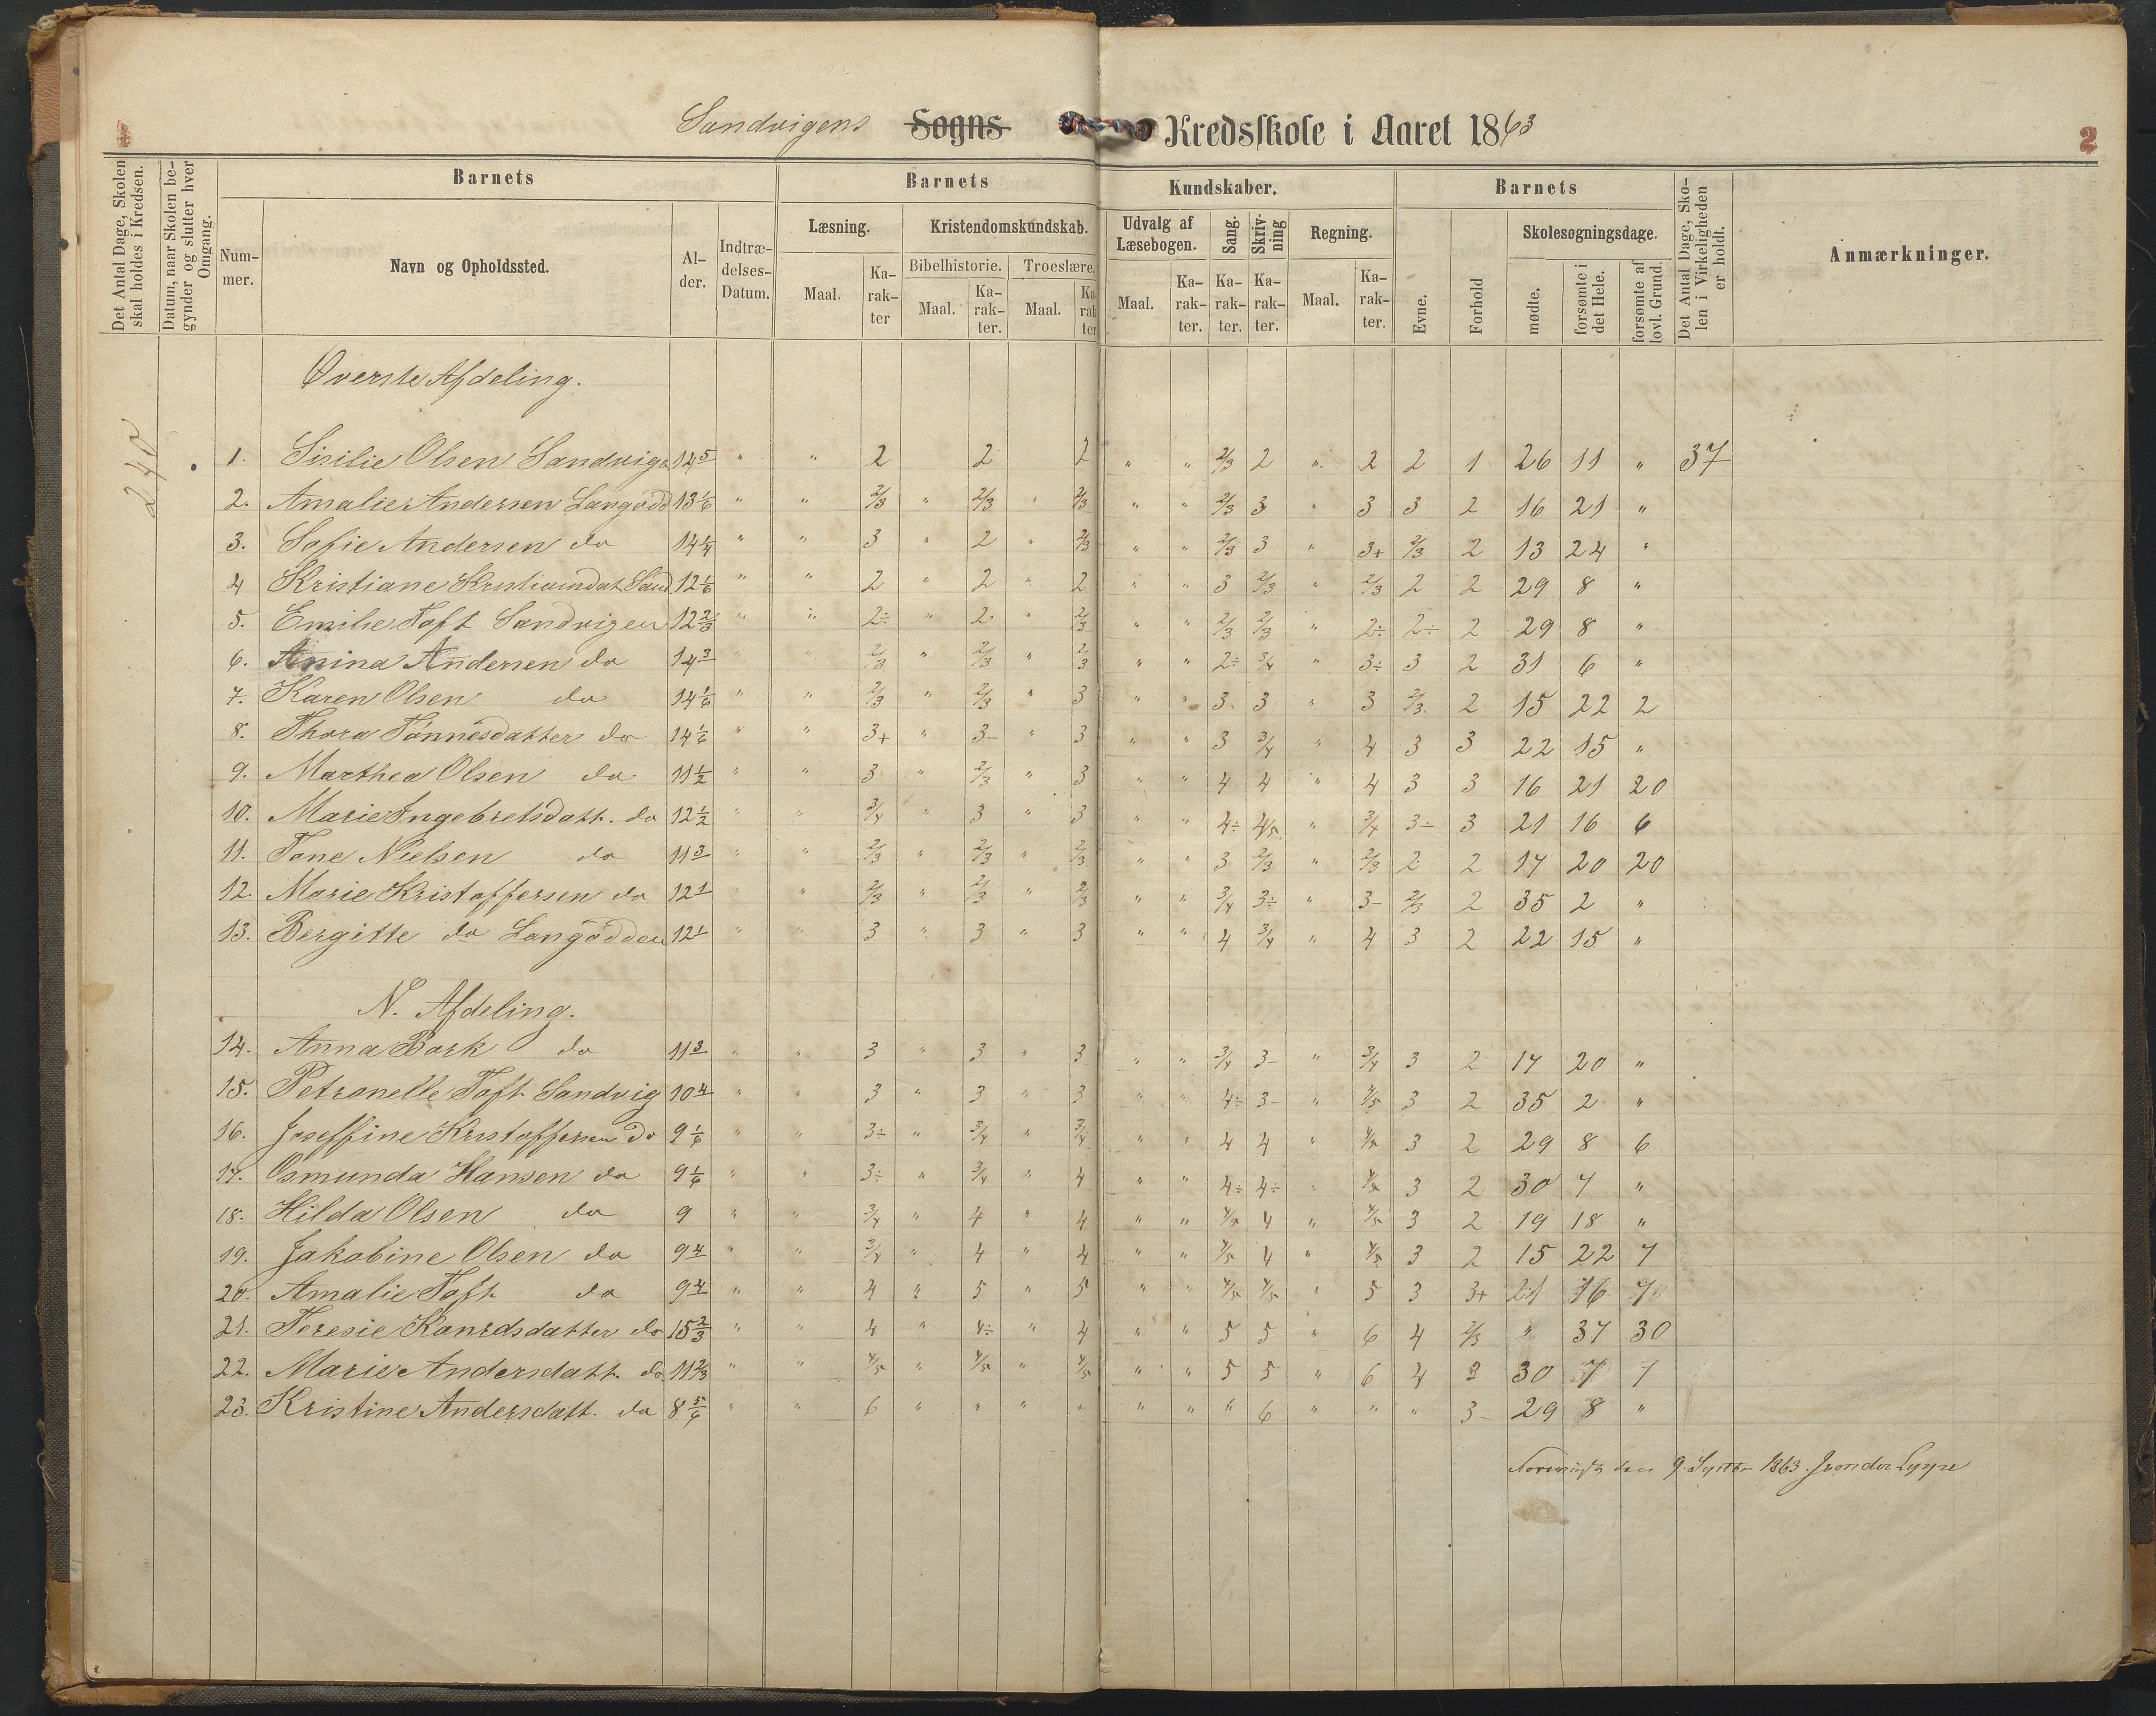 Sandvigens Sogns Kredsskole i Aaret 1863
2
Det Antal Dage, Skolen skal holdes i Kredsen.
Datum, naar Skolen begynder og slutter hver Omgang.
Barnets
Barnets
Kundskaber.
Barnets
Det Antal Dage, Skolen i Virkeligheden er holdt.
Anmærkninger.
Nummer.
Navn og Opholdssted.
Alder.
Indtrædelses-Datum.
Læsning.
Kristendomskundskab.
Udvalg af Læsebogen.
Sang.
Skrivning
Regning.
Evne.
Forhold
Skolesøgningsdage.
Maal.
Karakter
Bibelhistorie.
Troeslære.
Maal.
Karakter.
Maal.
Karakter
Maal.
Karakter.
Karakter.
Karakter.
Maal.
Karakter.
mødte.
forsømte i det Hele.
forsømte af lovl. Grund.
Øverste Afdeling.
240
1. Sisilie Olsen Sandvigen 14 5 " " 2 2 2 " " 2/3 2 " 2 2 1 26 11 " 37
2. Amalie Andersen Langødd 13 1/6 " " 2/3 " 2/3 " 2/3 " " 2/3 3 " 3 3 2 16 21 "
3. Sofie Andersen do 14 1/4 " " 3 " 2 " 2/3 " " 2/3 3 " 3+ 2/3 2 13 24 "
4 Kristiane Sand 12 1/6 " " 2 " 2 " 2 " " 3 2/3 " 2/3 2 2 29 8 "
5. Emilie Toft Sandvigen 12 2/3 " " 2÷ " 2 " 2/3 " " 2/3 2/3 " 2÷ 2÷ 2 29 8 "
6. Anina Andersen do 14 3 " " 2/3 " 2/3 " 2/3 " " 2÷ 3/4 " 3÷ 3 2 31 6 "
7. Karen Olsen do 14 1/6 " " 2/3 " 2/3 " 3 " " 3 3 " 3 2/3 2 15 22 2
8. Thora Tönnesdatter do 14 1/6 " " 3+ " 3- " 3 " " 3 3/4 " 4 3 3 22 15 "
9. Marthea Olsen do 11 1/2 " " 3 " 2/3 " 3 " " 4 4 " 4 3 3 16 21 20
10. Marie Ingebretsdatt. do 12 1/2 " " 3/4 " 3 " 3 " " 4÷ 4/5 " 3/4 3÷ 3 21 16 6
11. Tone Nielsen do 11 3 " " 2/3 " 2/3 " 2/3 " " 3 2/3 " 2/3 2 2 17 20 20
12. Marie Kristoffersen do 12 1 " " 2/3 " 2/3 " 2/3 " " 3/4 3÷ " 3- 2/3 2 35 2 "
13. Bergitte do Langødden 12 1 " " 3 " 3 " 3 " " 4 3/4 " 4 3 2 22 15 "
N. Afdeling.
14. Anna Bork do 11 3 " " 3 " 3 " 3 " " 3/4 3- " 3/4 3 2 17 20 "
15. Petronelle Toft Sandvig 10 4 " " 3 " 3 " 3 " " 4÷ 3- " 4/5 3 2 35 2 "
16. Joseffine Kristoffersen Do 9 1/6 " " 3÷ " 3/4 " 3/4 " " 4 4 " 4/5 3 2 29 8 6
17. Osmunda Hansen do 9 1/6 " " 3÷ " 3/4 " 4 " " 4÷ 4÷ " 4/5 3 2 30 7 "
18. Hilda Olsen do 9 " " 3/4 " 4 " 4 " " 4/5 4 " 4/5 3 2 19 18 "
19. Jakobine Olsen do 9 4 " " 3/4 " 4 " 4 " " 4/5 4 " 4/5 3 2 15 22 7
20. Amalie Toft do 9 4 " " 4 " 5 " 5 " " 4/5 4/5 " 5 3 3+ 21 16 7
21. Teresie Kanrdsdatter do 15 2/3 " " 4 " 4÷ " 4 " " 5 5 " 6 4 2/3 " 37 30
22. Marie Andersdatt. do 11 2/3 " " 4/5 " 4/5 " 4/5 " " 5 5 " 6 4 3 30 7 7
23. Kristine Andersdatt. do 8 5/6 " " 6 " " " " " " " 6 " " " 3- 29 8 "
den 9 1863.